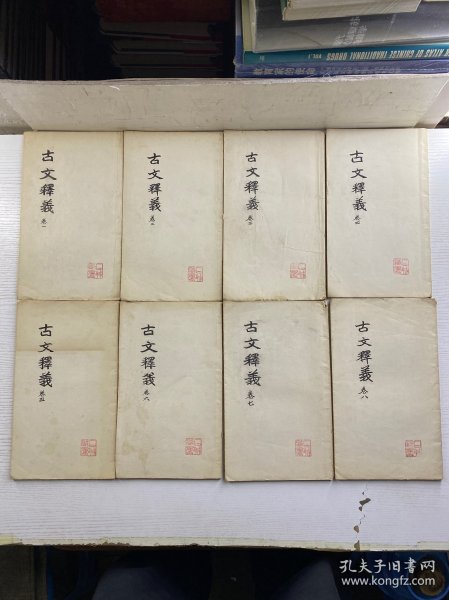 ATLAS OF CHINESE TRADITIONAL DRUGS VOL.1
古文釋義 卷一
古文釋義 卷二
古文釋義 卷三
古文釋義 卷四
古文釋義 卷五
古文釋義 卷六
古文釋義 卷七
古文釋義 卷八
孔夫子旧书网
www.kongfz.com